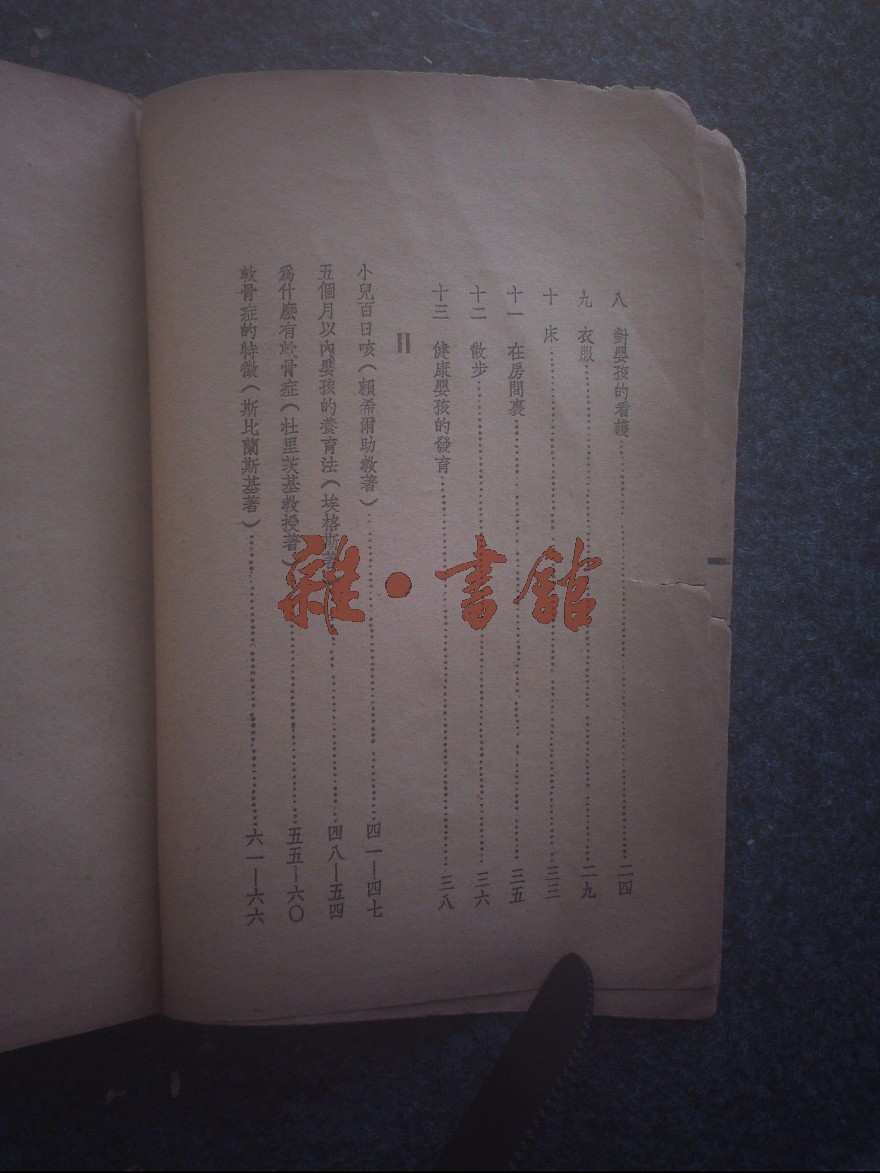 八 對嬰孩的看護……二四
九 衣服……二九
十 床……三三
十一 在房間裏……三五
十二 散步……三六
十三 健康嬰孩的發育……三八
II
小兒百日咳(賴希爾助教著)……四一—四七
五個月以內嬰孩的養育法(埃格斯著)……四八—五四
爲什麽有軟骨症(杜里茨基教授著)……五五—六〇
軟骨症的特徵(斯比蘭斯基著)……六一—六六
雜·書館